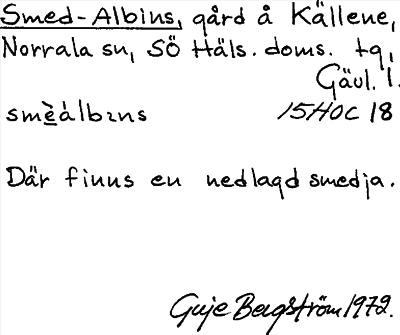 Smed-Albins, gård å Källene,
Norrala sn, SÖ Häls. doms. tq,
Gävl. l.
smèálbɩns 15HOC 18
Där finns en nedlagd smedja.
Guje Bergström 1972.